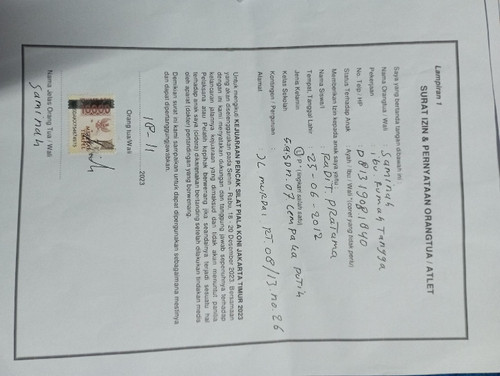 Lampiran 1
SURAT IZIN & PERNYATAAN ORANGTUA / ATLET
Saya yang bertanda tangan dibawah ini
Nama Orangtua / Wali : Saminah
Pekerjaan : ibu Rumah Tangga
No. Telp / HP : 081319081840
Status Terhadap Anak : Ayah / Ibu / Wali *(coret yang tidak perlu)
Memberikan izin kepada anak saya yaitu
Nama Siswa/i : RADIT PRATAMA
Tempat, Tanggal Lahir : 25-06-2012
Jenis Kelamin : L / P * (lingkari salah satu)
Kelas Sekolah : 6A SDN.07 Cempaka putih
Kontingen / Perguruan :
Alamat : JL MURDAI. RT.08/13.no.26
Untuk mengikuti KEJUARAAN PENCAK SILAT PIALA KONI JAKARTA TIMUR 2023
yang akan diselenggarakan pada Senin - Rabu, 18 - 20 Desember 2023. Bersamaan
dengan ini kami menyatakan dukungan dan tanggung jawab sepenuhnya terhadap
kelancaran jalannya kejuaraan yang dimaksud dan tidak akan menuntut panitia
Pelaksana atau Pelatih kepihak berwenang jika seandainya terjadi sesuatu hal
terhadap anak saya (cidera) dikarenakan bertanding setelah dilakukan tindakan medis
oleh aparat (dokter) pertandingan yang berwenang.
Demikian surat ini kami sampaikan untuk dapat dipergunakan sebagaimana mestinya
dan dapat dipertanggungjawabkan.
18-11 2023
Orang tua/Wali
Saminah
Nama Jelas Orang Tua / Wali